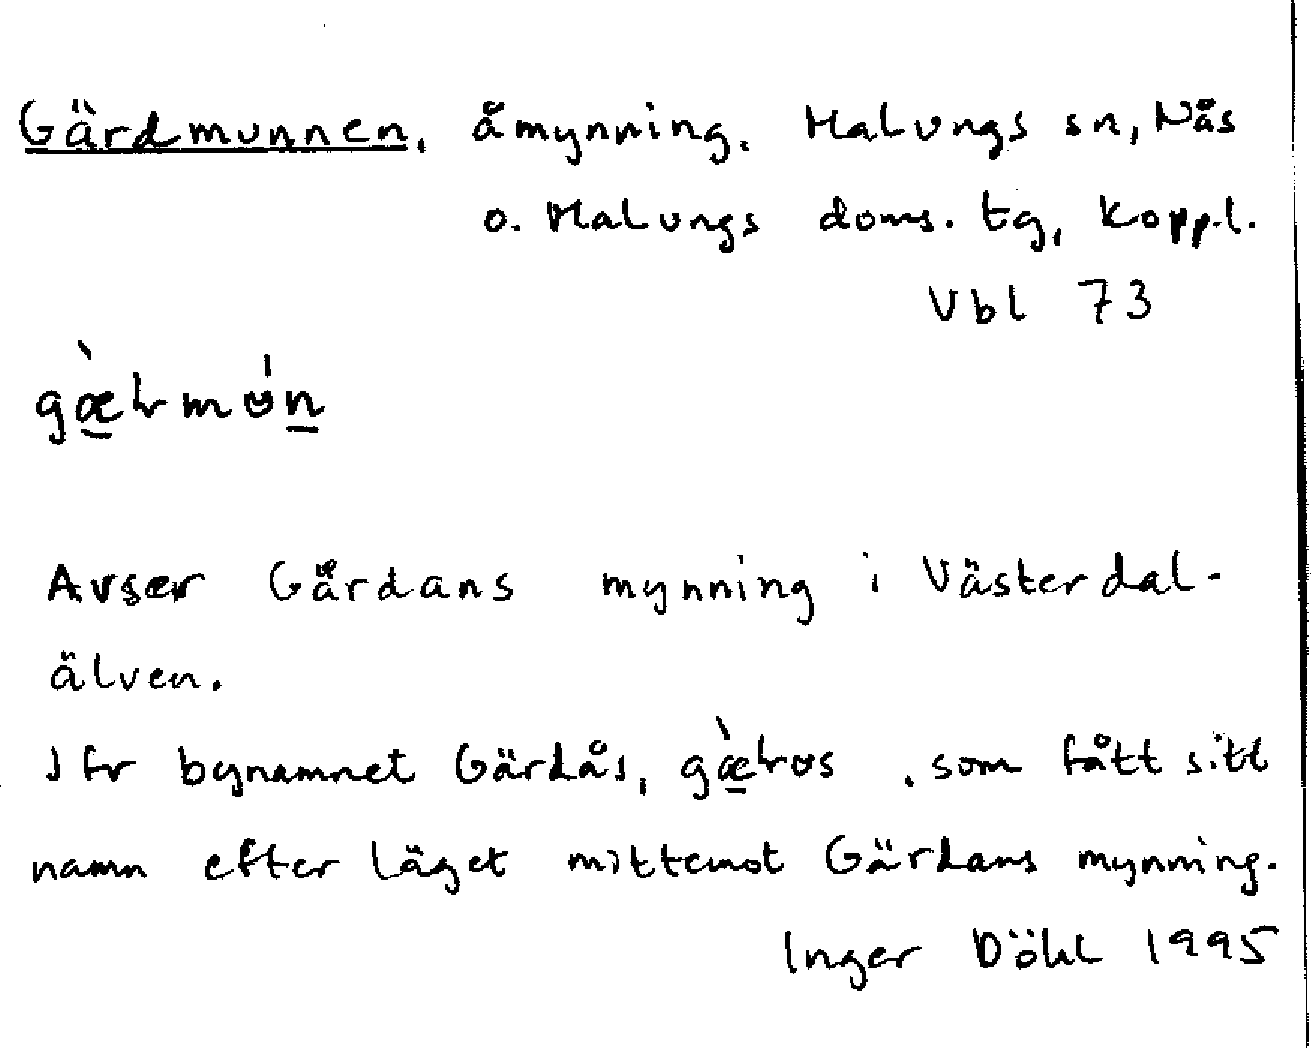 Gärdmunnen, åmynning. Malungs sn, Nås
o. Malungs doms. tg, Koppl.
Vbl 73
Avser Gärdans mynning i Västerdal-
älven.
Jfr bynamnet Gärdås, som fått sitt
namn efter läget mittemot Gärdans mynning.
Inger Döhl 1995